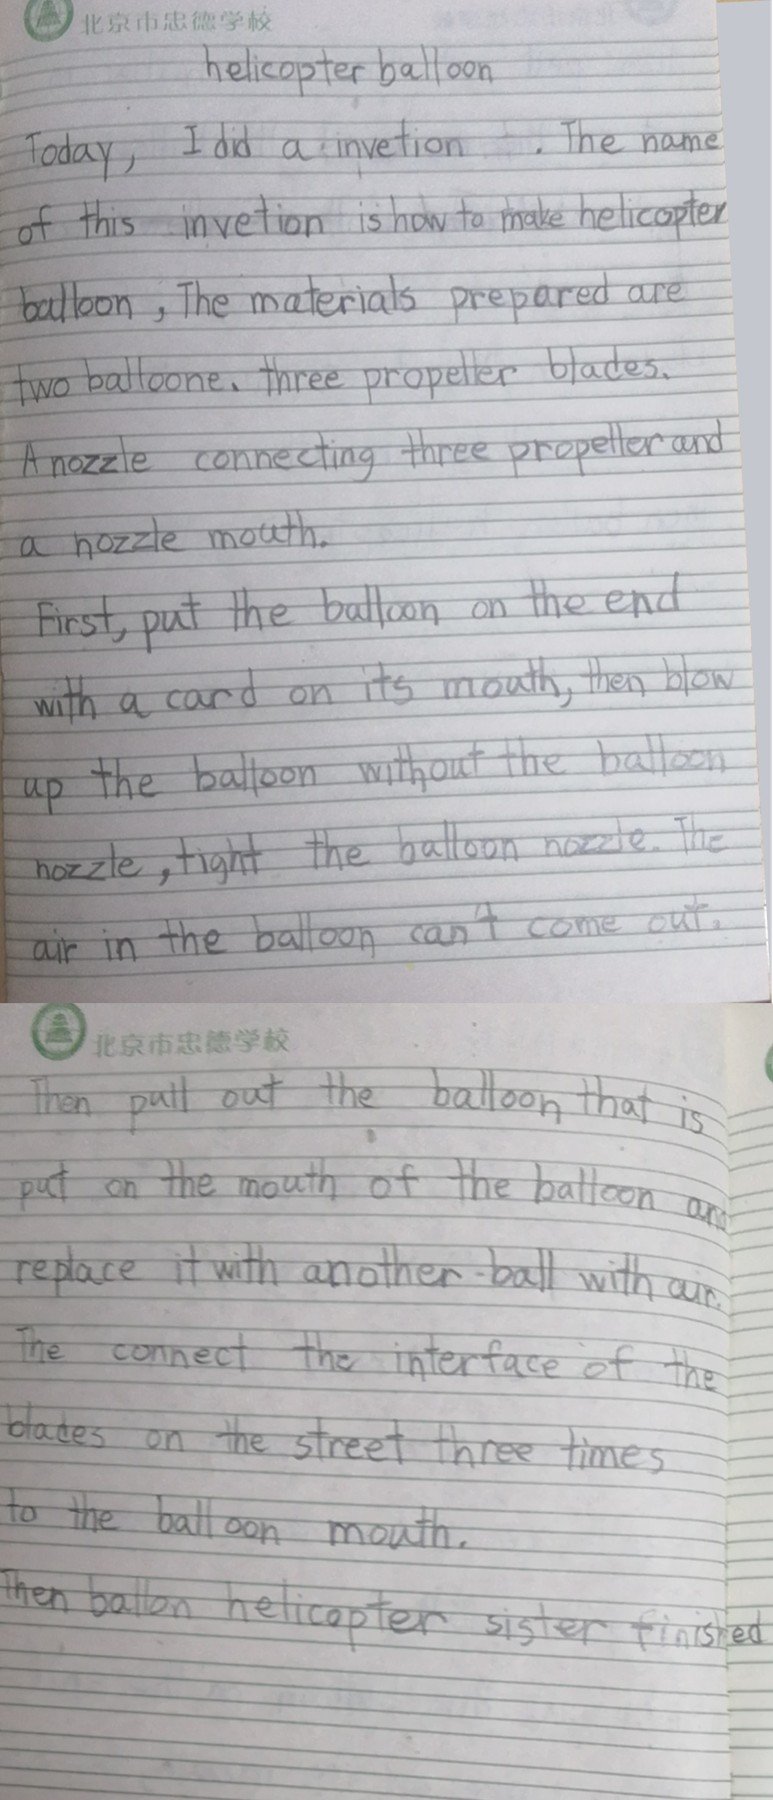 北京市忠德学校
helicopter balloon
Today, I did a invetion . The name
of this invetion is how to make helicopter
balloon, The materials prepared are
two balloone、three propeller blades.
A nozzle connecting three propeller and
a nozzle mouth.
First, put the balloon on the end
with a card on its mouth, then blow
up the balloon without the balloon
nozzle, tight the balloon nozzle. The
air in the balloon can't come out.
北京市忠德学校
Then pull out the balloon that is
put on the mouth of the balloon and
replace it with another ball with air.
The connect the interface of the
blades on the street three times
to the balloon mouth.
Then ballon helicopter sister finished